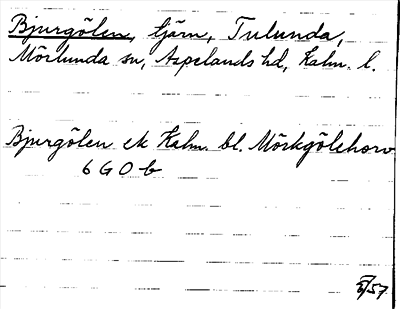 Bjurgölen, tjärn, Tulunda,
Mörlunda sn, Aspelands hd, Kalm. l.
Bjurgölen ek Kalm. bl. Mörkgölshorv
6 G O b
5/57